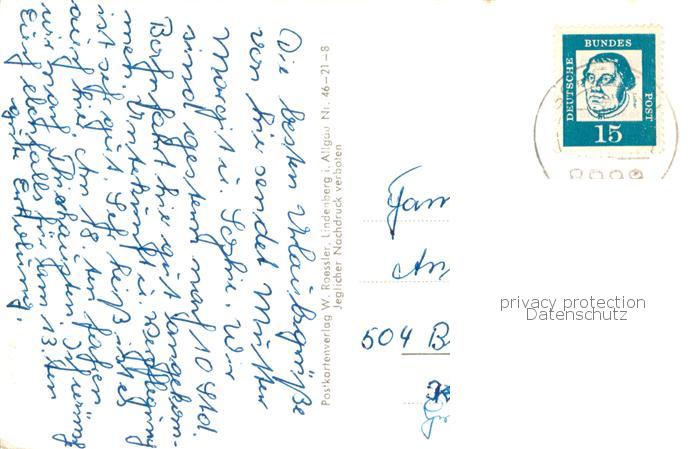 Die besten Urlaubsgrüße
von hier sendet Mutter
Margit u. Sophie. Wir
sind gestern nach 10 Std.
Busfahrt hier gut angekom-
men. Unterkunft u. Verpflegung
ist sehr gut. Sehr heiß ist es
auch hier. Am 18 ten fahren
wir nach
Euch ebenfalls für zum 13. ten
gute Erholung.
Postkartenverlag W. Roessler, Lindenberg i. Allgäu Nr. 46-21-8
Jeglicher Nachdruck verboten
DEUTSCHE
BUNDES
POST
15
Fam
An
504 B
privacy protection
Datenschutz